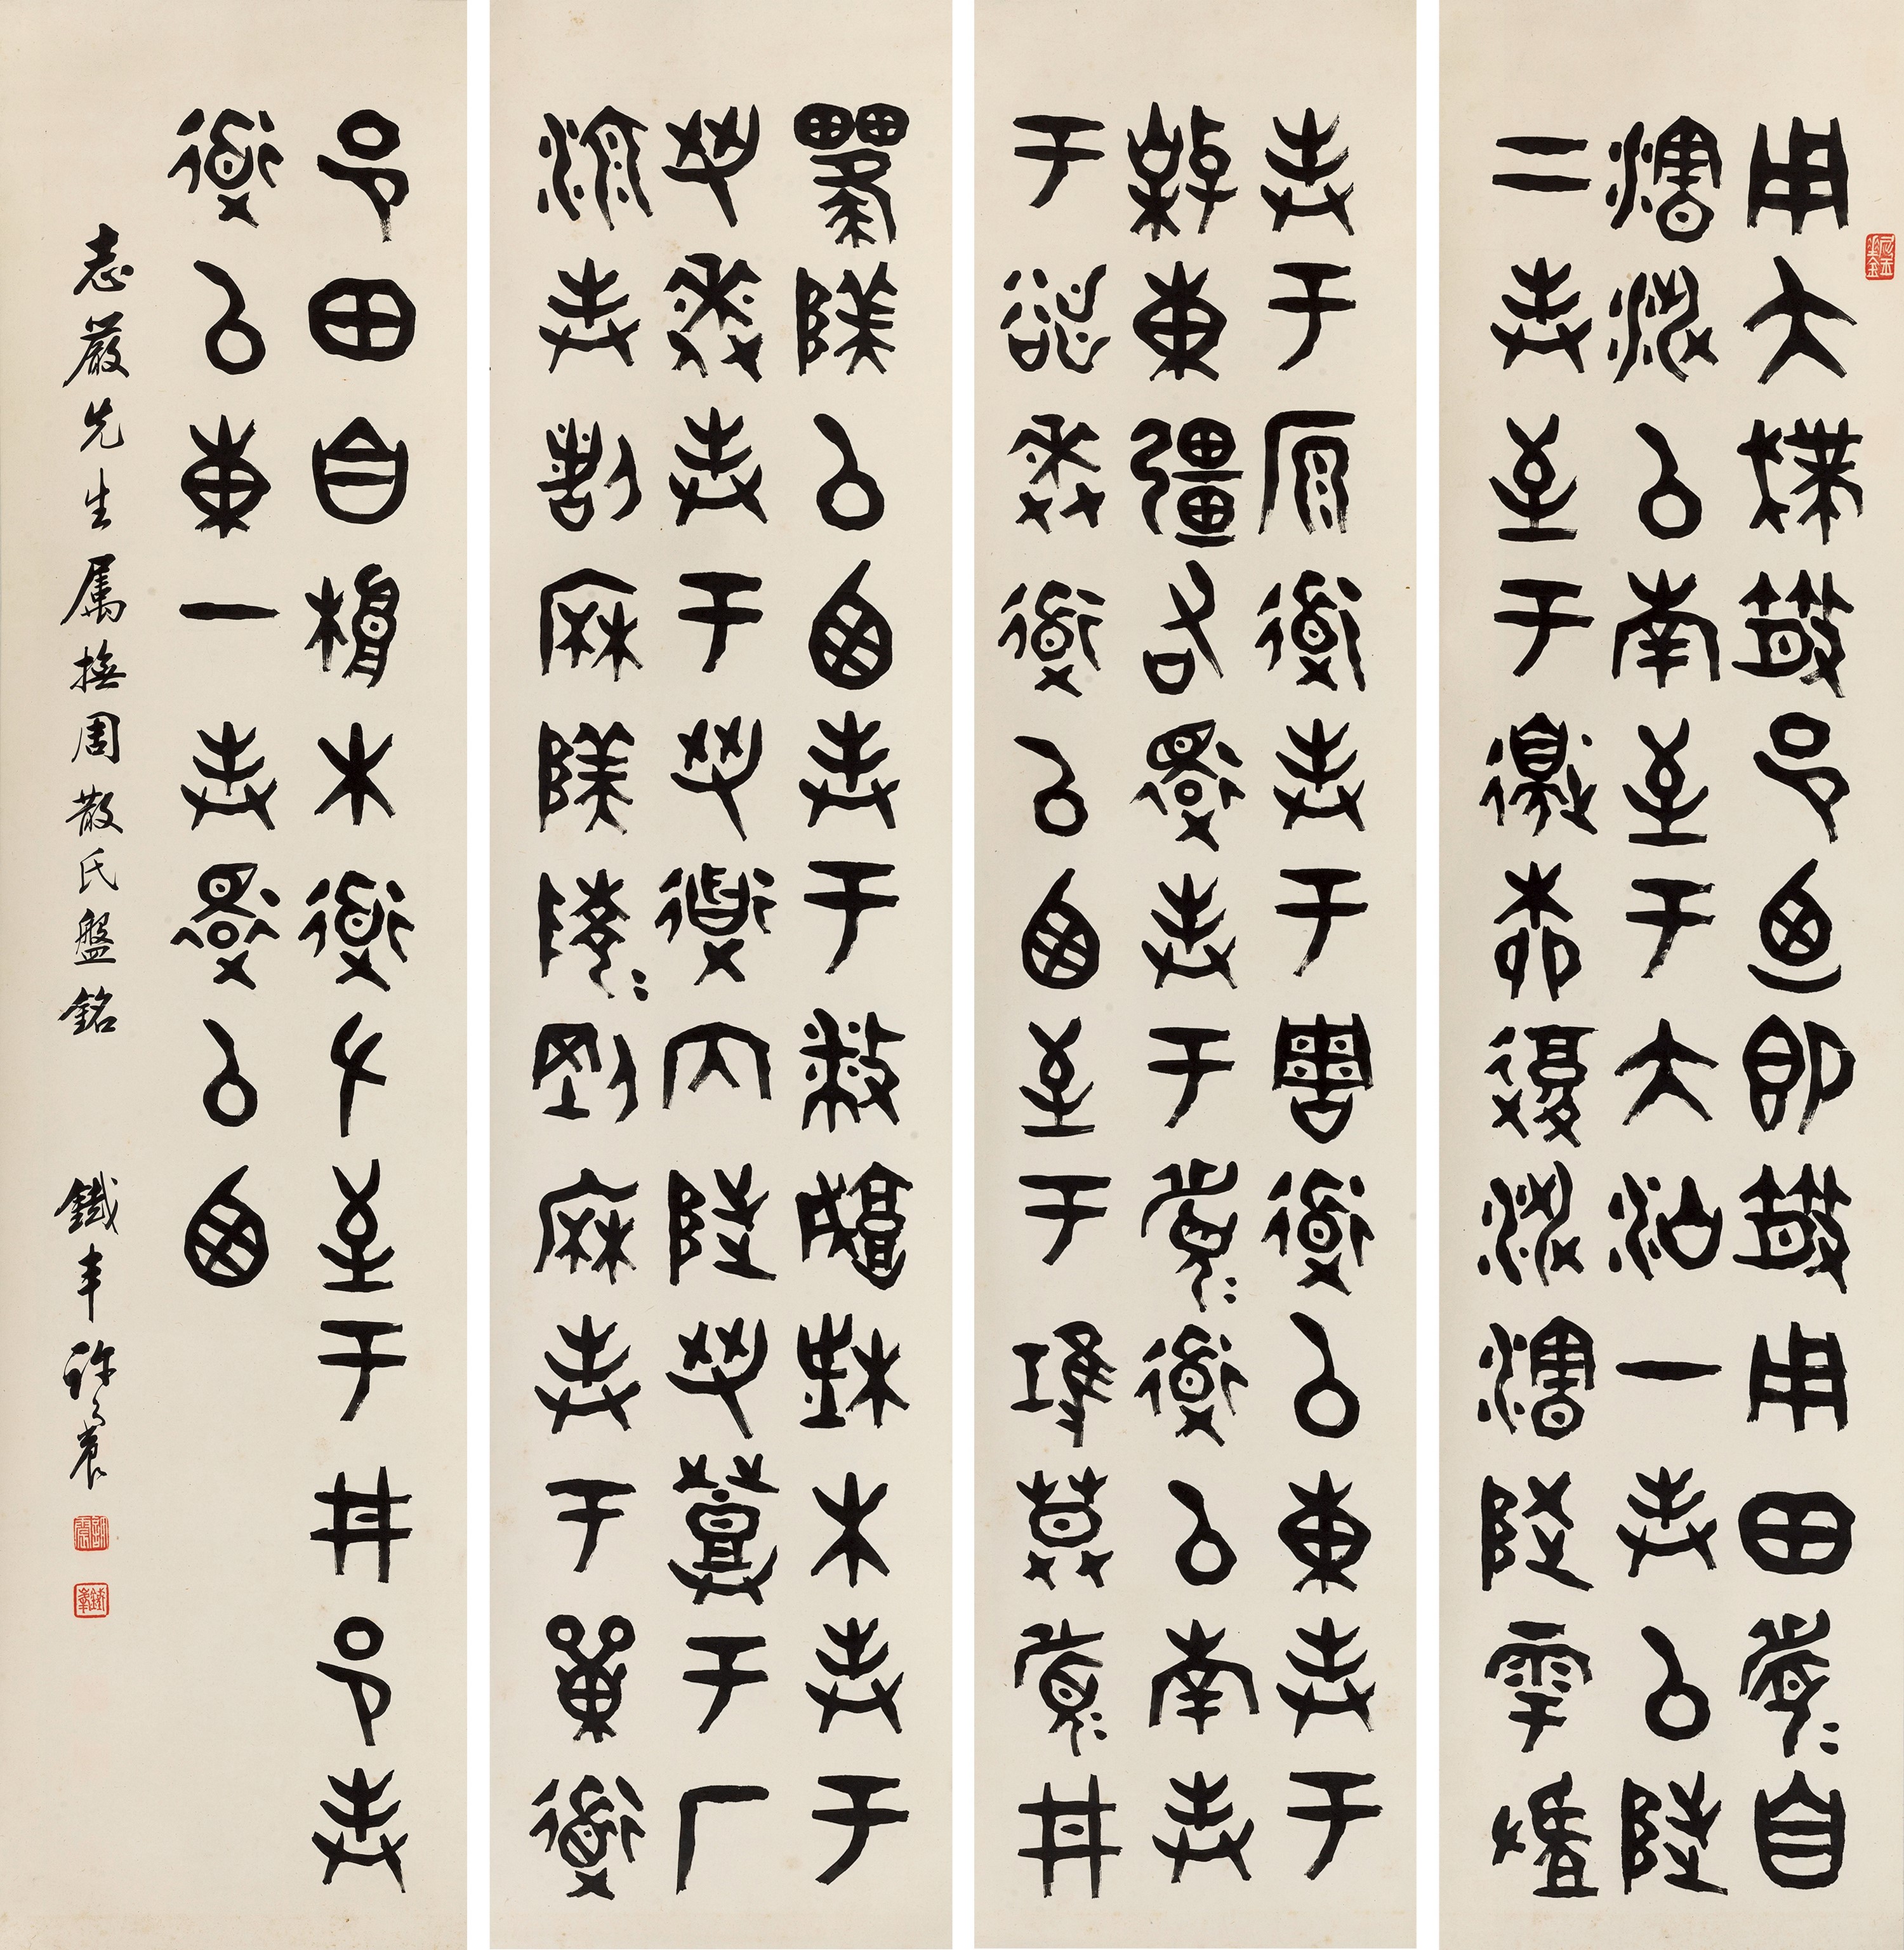 用夨撲散邑迺即散用田眉自
瀗涉以南至于大沽一封以陟
二封至于邊柳復涉瀗陟雩
以西封于播城楮木封于
芻逨封于芻道内陟芻登于厂
湶封割𣏟陕陵剛𣏟封于單道
封于原道封于周道以東封于
東疆右還封于眉道以南封
于逨道以西至于堆莫眉井
邑田自根木道左至于井邑封
道以東一封還以西
志嚴先生屬撫周散氏盤銘 鐵丰許